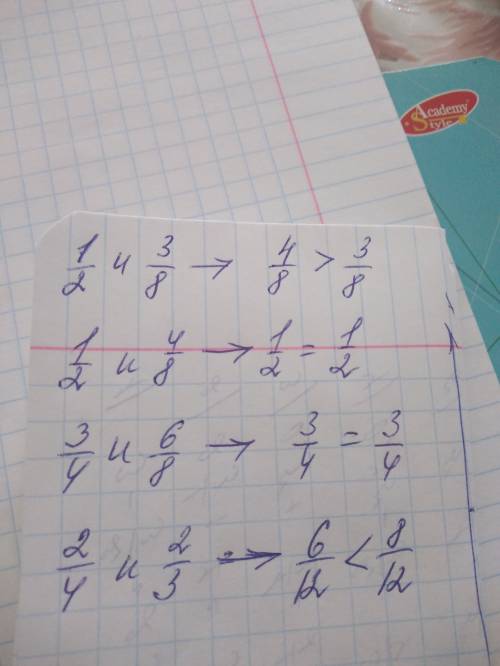 Academy
Style
1/2 и 3/8 → 4/8 > 3/8
1/2 и 4/8 → 1/2 = 1/2
3/4 и 6/8 → 3/4 = 3/4
2/4 и 2/3 → 6/12 < 8/12